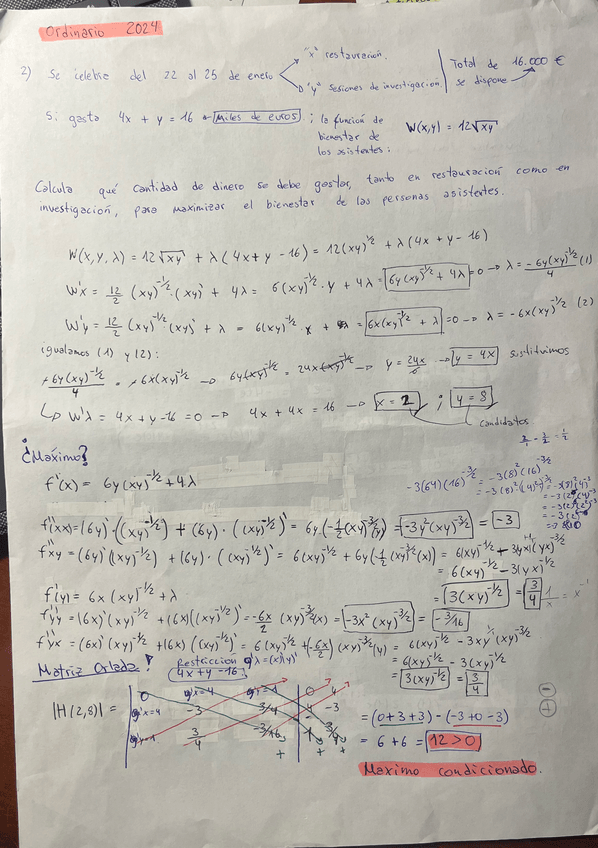 Ordinario 2024
2) Se celebra del 22 al 25 de enero
"x" restauración.
"y" Sesiones de investigación
Total de 16.000 €
se dispone
Si gasta 4x + y = 16 → Miles de euros. ; la función de
bienestar de
los asistentes:
W(x,y) = 12√xy
Calcula qué cantidad de dinero se debe gastar, tanto en restauración como en
investigación, para maximizar el bienestar de las personas asistentes.
W(x, y, λ) = 12√xy + λ(4x + y - 16) = 12(xy)^1/2 + λ(4x + y - 16)
W'x = 12/2 (xy)^-1/2 · (xy)' + 4λ = 6(xy)^-1/2 · y + 4λ = 6y(xy)^-1/2 + 4λ = 0 → λ = -6y(xy)^-1/2 / 4 (1)
W'y = 12/2 (xy)^-1/2 · (xy)' + λ = 6(xy)^-1/2 · x + λ = 6x(xy)^-1/2 + λ = 0 → λ = -6x(xy)^-1/2 (2)
igualamos (1) y (2):
-6y(xy)^-1/2 / 4 = -6x(xy)^-1/2 → 6y(xy)^-1/2 = 24x(xy)^-1/2 → y = 24x/6 → y = 4x sustituimos
↳ W'λ = 4x + y - 16 = 0 → 4x + 4x = 16 → x = 2 ; y = 8
candidatos
¿Maximo?
2/2 - 3/2 = 1/2
f'(x) = 6y(xy)^-1/2 + 4λ
-3(64)(16)^-3/2 = -3(8)^2(16)^-3/2
f''xx = (6y)' · ((xy)^-1/2) + (6y) · ((xy)^-1/2)' = 6y(-1/2(xy)^-3/2(y)) = -3y^2(xy)^-3/2 = -3
f''xy = (6y)'((xy)^-1/2) + (6y) · ((xy)^-1/2)' = 6(xy)^-1/2 + 6y(-1/2(xy)^-3/2(x)) = 6(xy)^-1/2 - 3yx(yx)^-3/2
= 6(xy)^-1/2 - 3(yx)^-1/2
= 3(xy)^-1/2 = 3/4
1/x = x^-1
f'(y) = 6x(xy)^-1/2 + λ
f''yy = (6x)'(xy)^-1/2 + (6x)((xy)^-1/2)' = -6x/2 (xy)^-3/2(x) = -3x^2(xy)^-3/2 = -3/16
f''yx = (6x)'(xy)^-1/2 + (6x)((xy)^-1/2)' = 6(xy)^-1/2 + (-6x/2)(xy)^-3/2(y) = 6(xy)^-1/2 - 3xy(xy)^-3/2
= 6(xy)^-1/2 - 3(xy)^-1/2
= 3(xy)^-1/2 = 3/4
Matriz Orlada!
Restriccion
4x + y - 16
|H(2,8)| =
0 g'x=4 g'y=1 0 4
g'x=4 -3 3/4 4 -3
g'y=1 3/4 -3/16 1 3/4
= (0+3+3) - (-3+0-3)
= 6 + 6 = 12 > 0
Maximo condicionado.